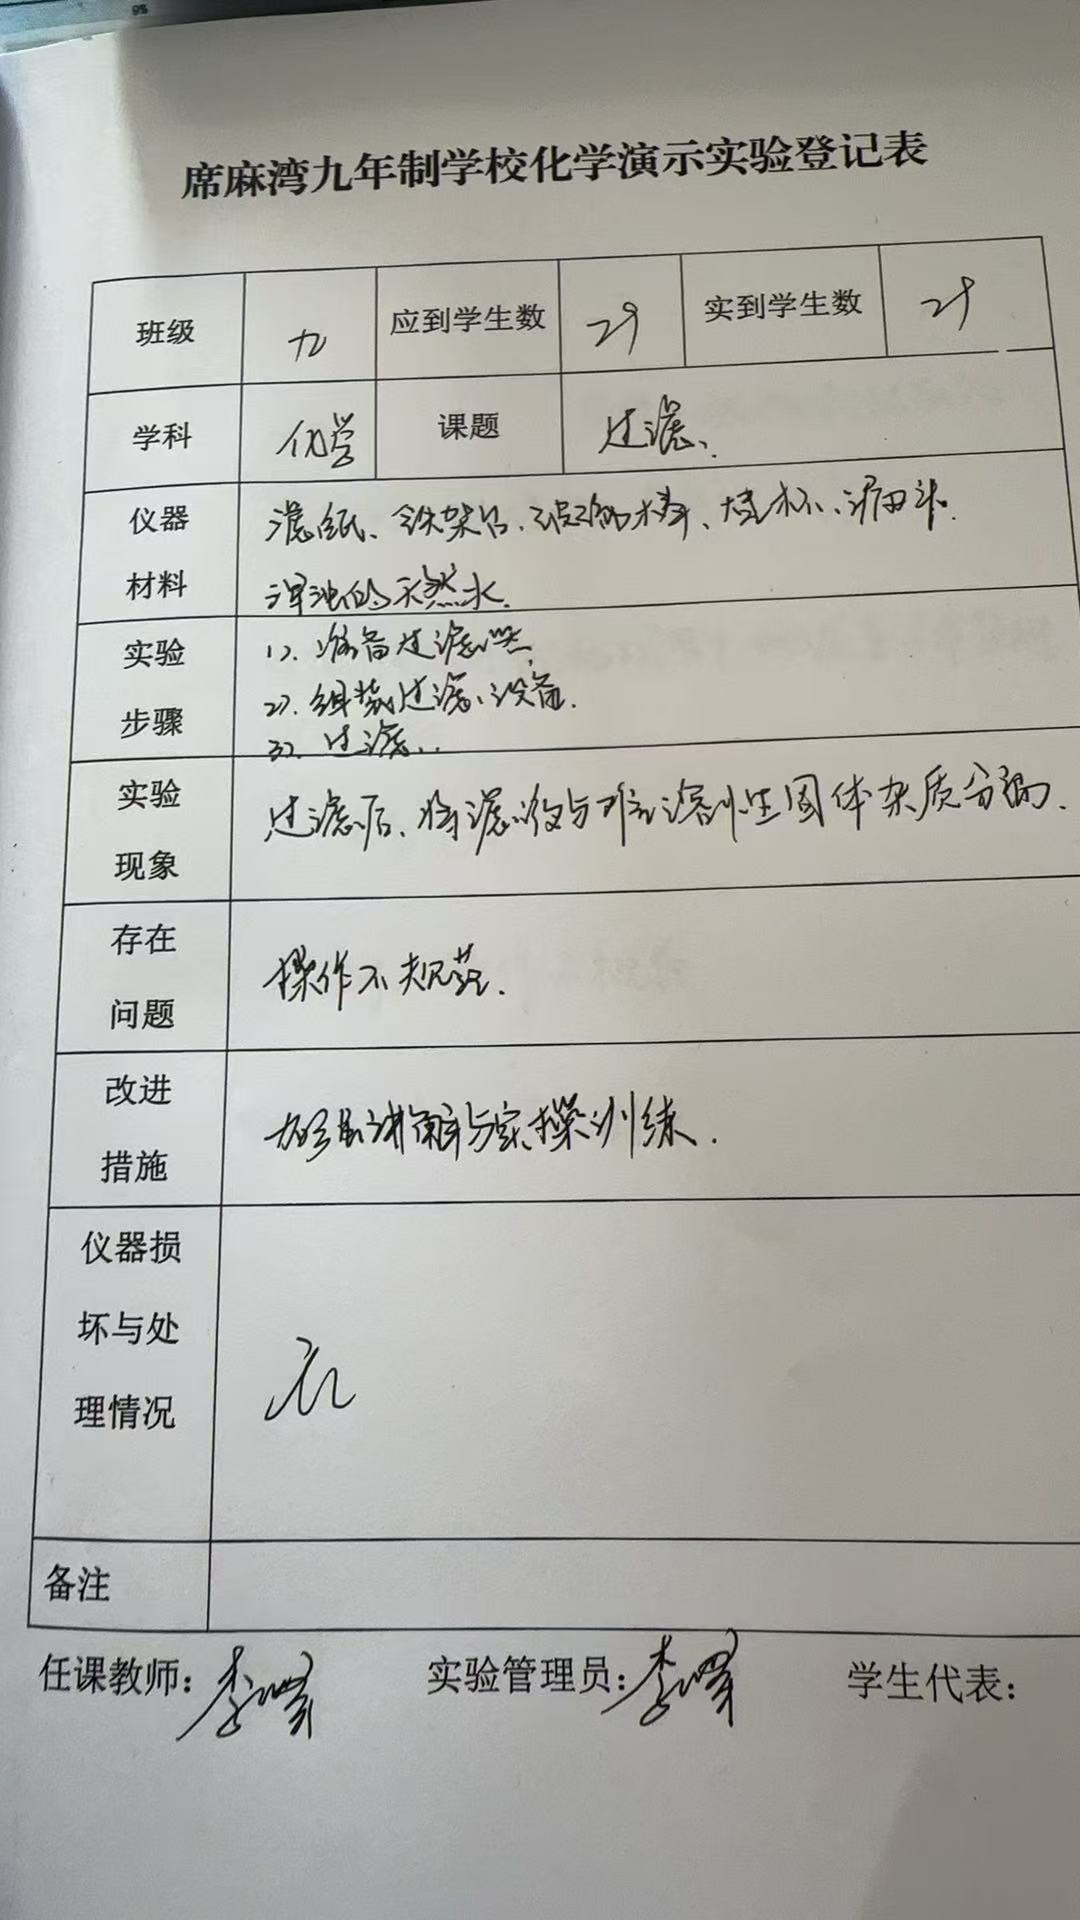 席麻湾九年制学校化学演示实验登记表
班级 九 应到学生数 29 实到学生数 29
学科 化学 课题 过滤
仪器材料 滤纸、铁架台、玻璃棒、烧杯、漏斗.
浑浊的天然水.
实验步骤 1). 准备过滤器
2). 组装过滤设备.
3). 过滤.
实验现象 过滤后、将滤液与难溶性固体杂质分离.
存在问题 操作不规范.
改进措施 加强讲解与实操训练.
仪器损坏与处理情况 无
备注
任课教师: 李 实验管理员: 李 学生代表: